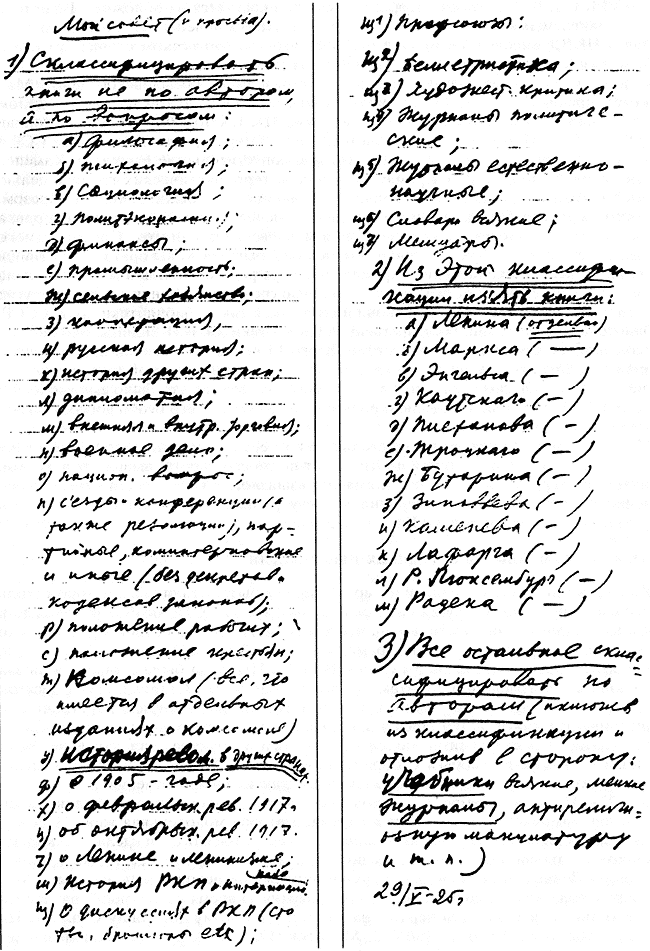 Мой совет (и просьба).
1) Склассифицировать
книги не по авторам,
а по вопросам:
а) философия;
б) психология;
в) социология;
г) политэкономия;
д) финансы;
е) промышленность;
ж) сельское хозяйство;
з) кооперация,
и) русская история;
к) история других стран;
л) дипломатия;
м) внешняя и внутр. торговля;
н) военное дело;
о) национ. вопрос;
п) съезды и конференции (а
также резолюции), пар-
тийные, коминтерновские
и иные (без декретов и
кодексов законов);
р) положение рабочих;
с) положение крестьян;
т) Комсомол (все, что
имеется в отдельных
изданиях о комсомоле)
у) история револ. в других странах
ф) о 1905 - годе;
х) о февральск. рев. 1917 г.
ц) об октябрьск. рев. 1917.
ч) о Ленине и ленинизме;
ш) История РКП и интернацион.
щ) О дискуссиях в РКП (ста
тьи, брошюры etc);
щ1) Профсоюзы:
щ2) беллетристика;
щ3) художест. критика;
щ4) Журналы политиче-
ские;
щ5) Журналы естественно-
научные;
щ6) Словари всякие;
щ7) Мемуары.
2) Из этой классифи-
кации изъять книги:
а) Ленина (отдельно)
б) Маркса (—)
в) Энгельса (—)
г) Каутского (—)
д) Плеханова (—)
е) Троцкого (—)
ж) Бухарина (—)
з) Зиновьева (—)
и) Каменева (—)
к) Лафарга (—)
л) Р. Люксембург (—)
м) Радека (—)
3) Все остальное склас=
сифицировать по
авторам (исключив
из классификации и
отложив в сторону:
учебники всякие, мелкие
журналы, антирелиги=
озную макулатуру
и т. п.)
29/V-25 г.